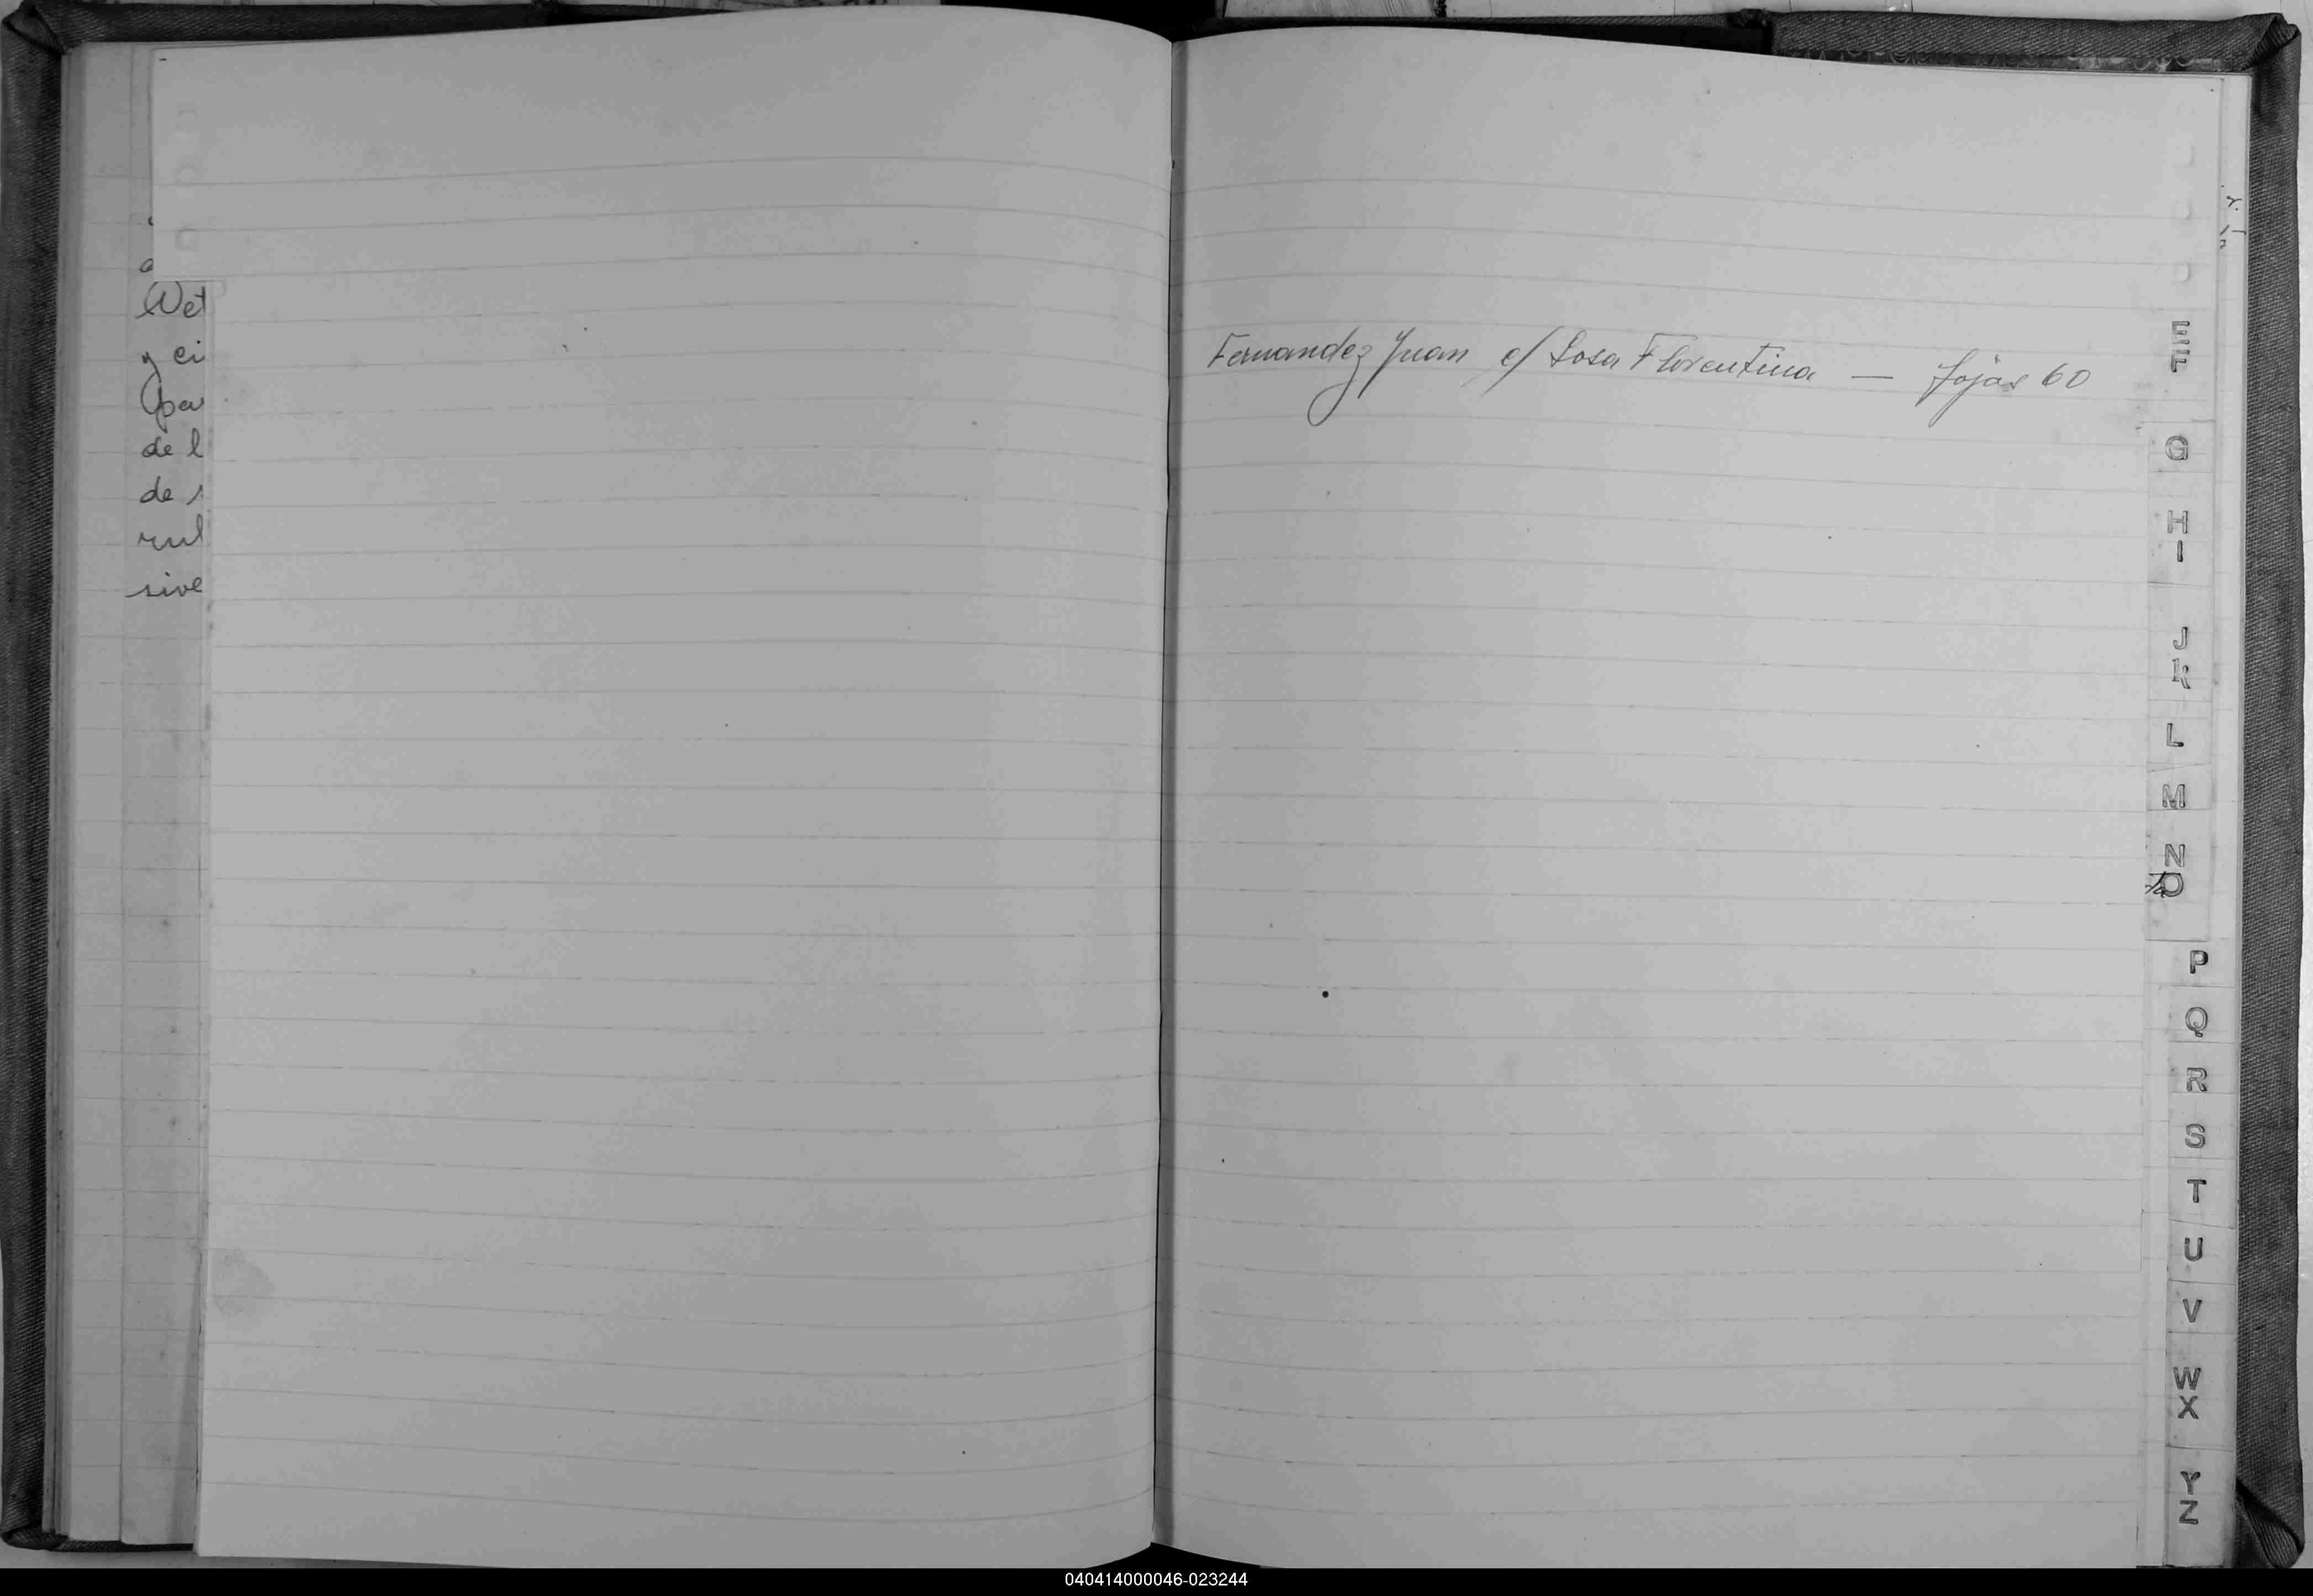 Wet
y ci
pa
de l
de
rul
sive
Fernandez Juan c/ Sosa Florentina — fojas 60
E
F
G
H
I
J
K
L
M
N
O
P
Q
R
S
T
U
V
W
X
Y
Z
040414000046-023244